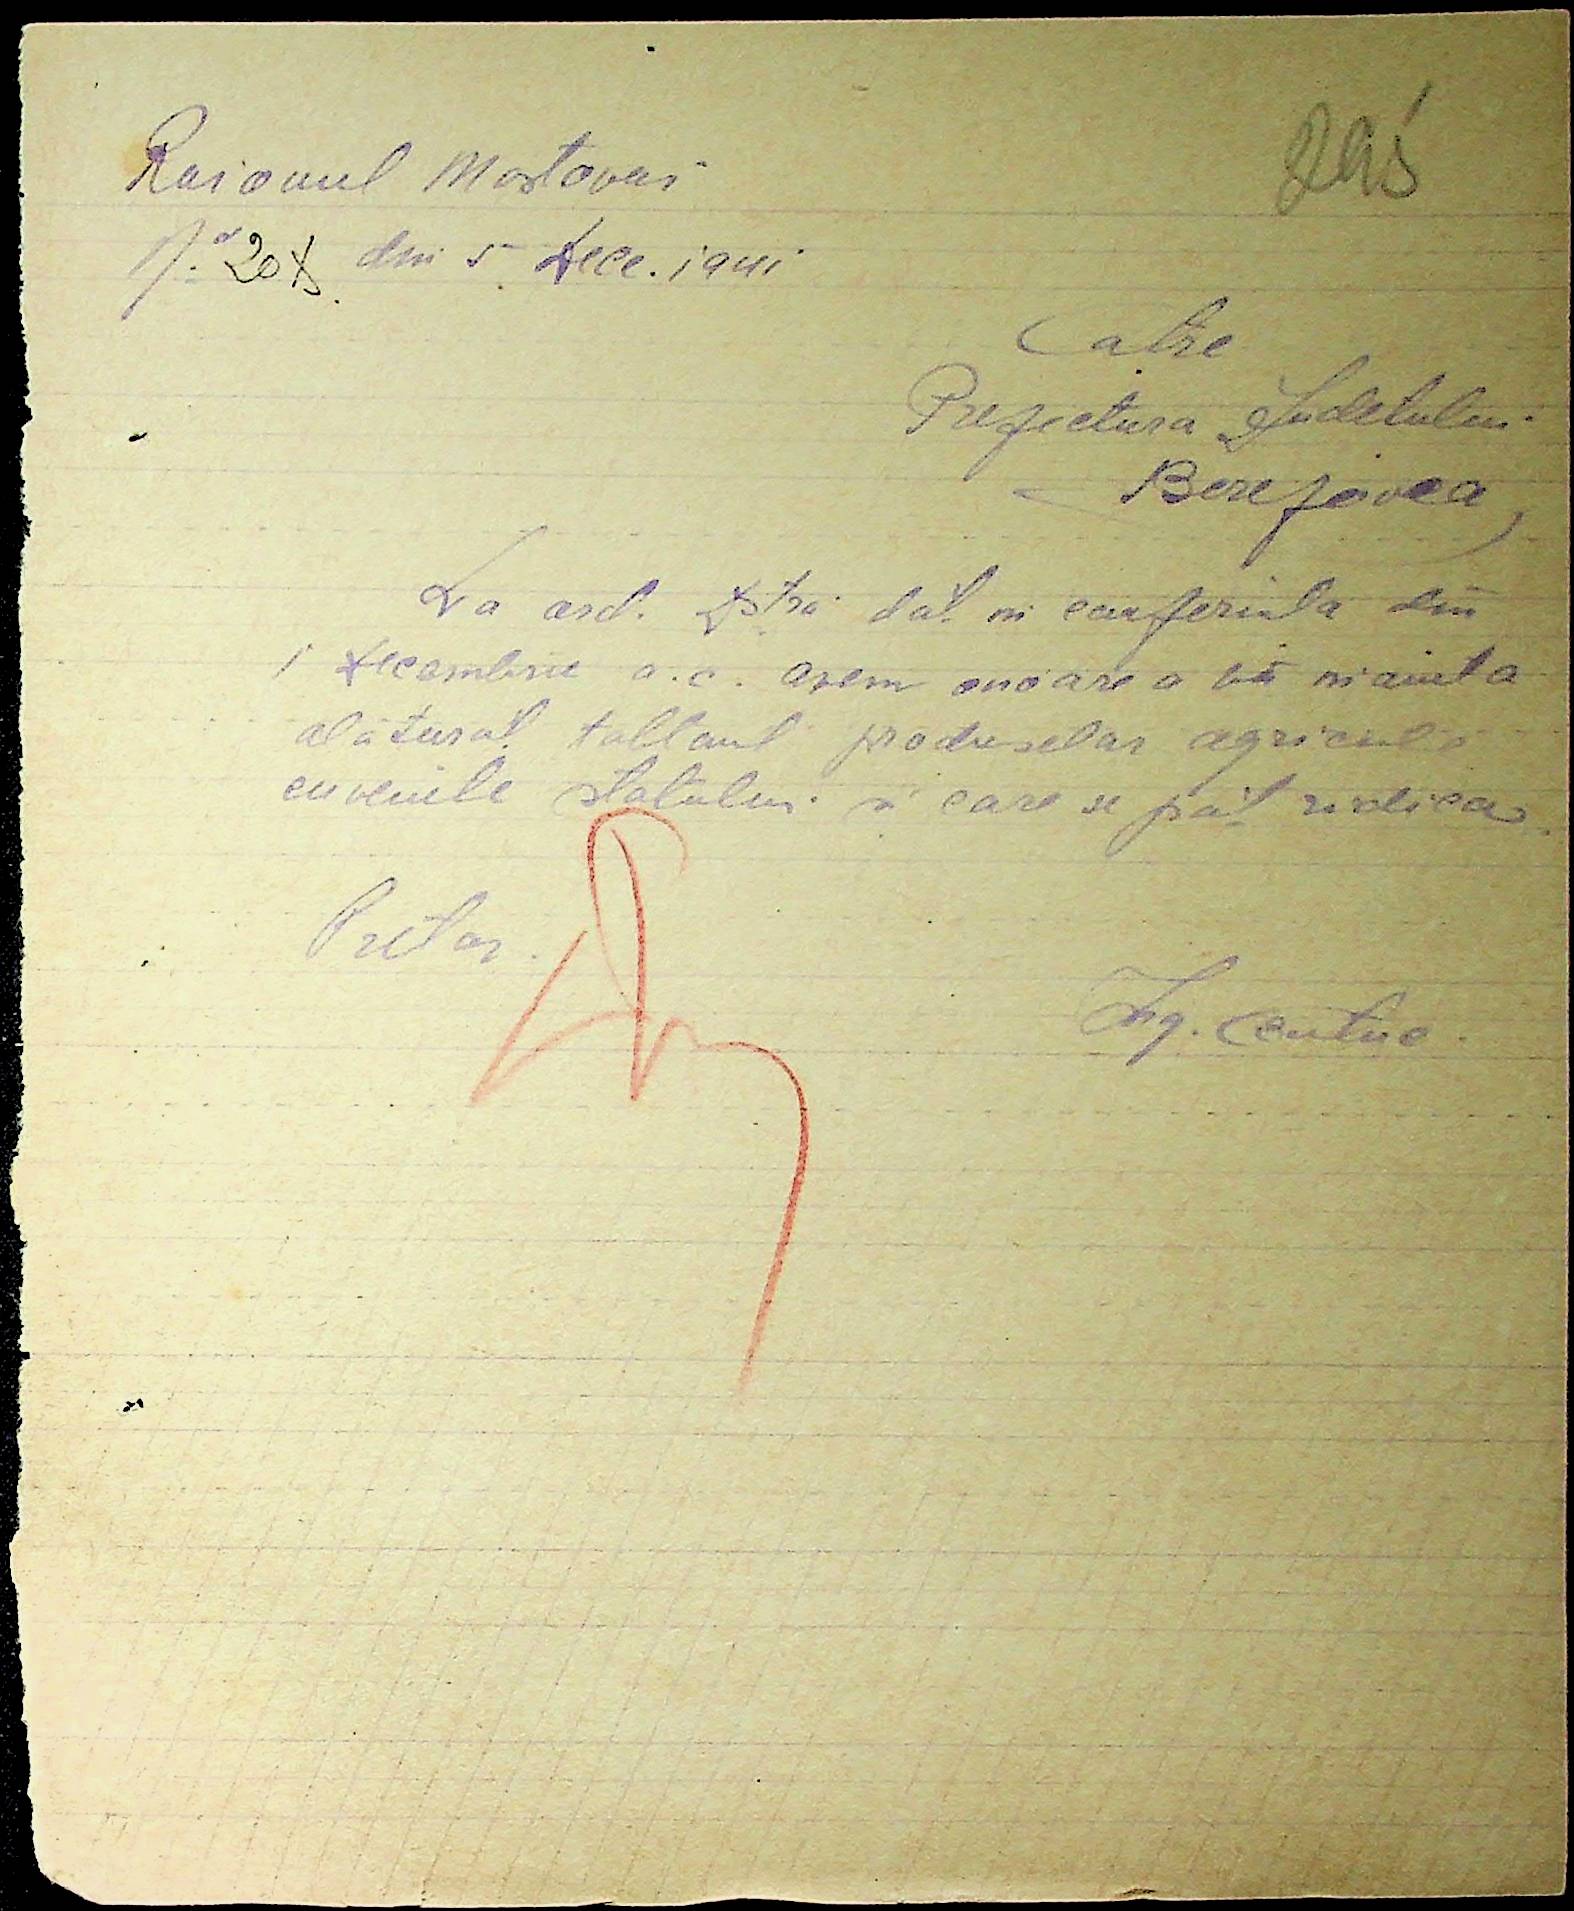 Raionul Mostovoi
No 20 din 5 Dece. 1941
Catre
Prefectura Judetului
Berezovca,
La ord. Dstră dat in conferinta din
1 Decembrie a.c. avem onoare a vă inainta
alăturat tabloul produselor agricole
cuvenite statului si care se pot ridica.
Pretor.
Ing.